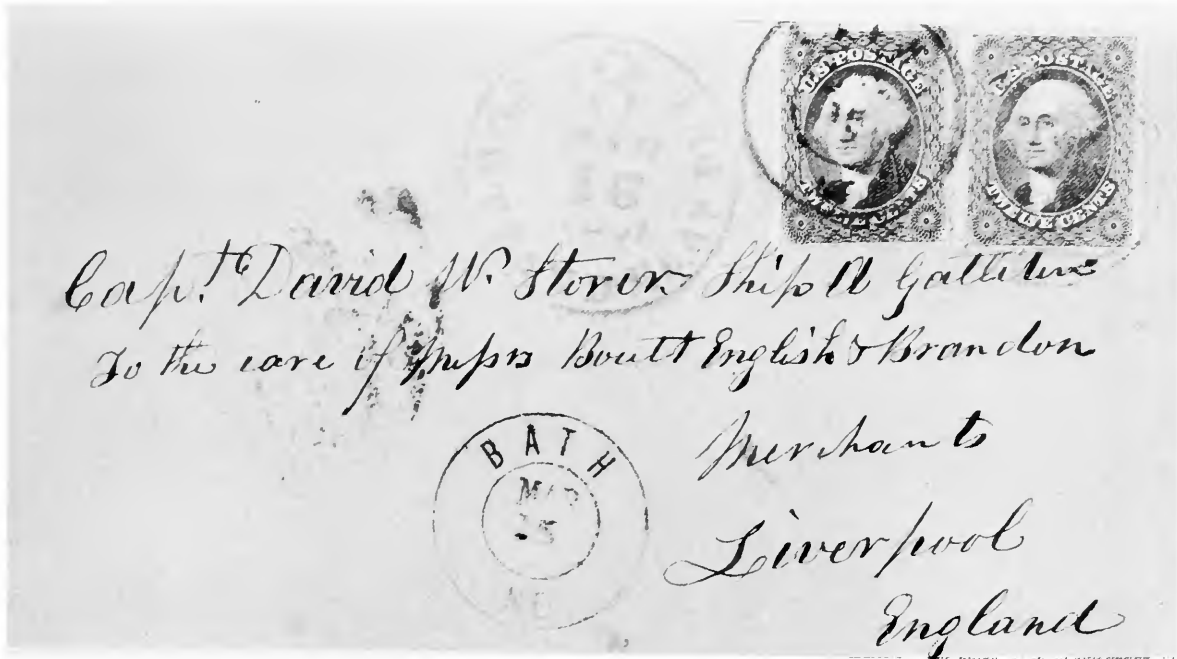 U.S. POSTAGE
TWELVE CENTS
U.S. POSTAGE
TWELVE CENTS
Capt. David W. Storer Ship A Gallitin
To the care of Messrs Boult English & Brandon
Merchants
Liverpool
England
BATH
MAR
ME.